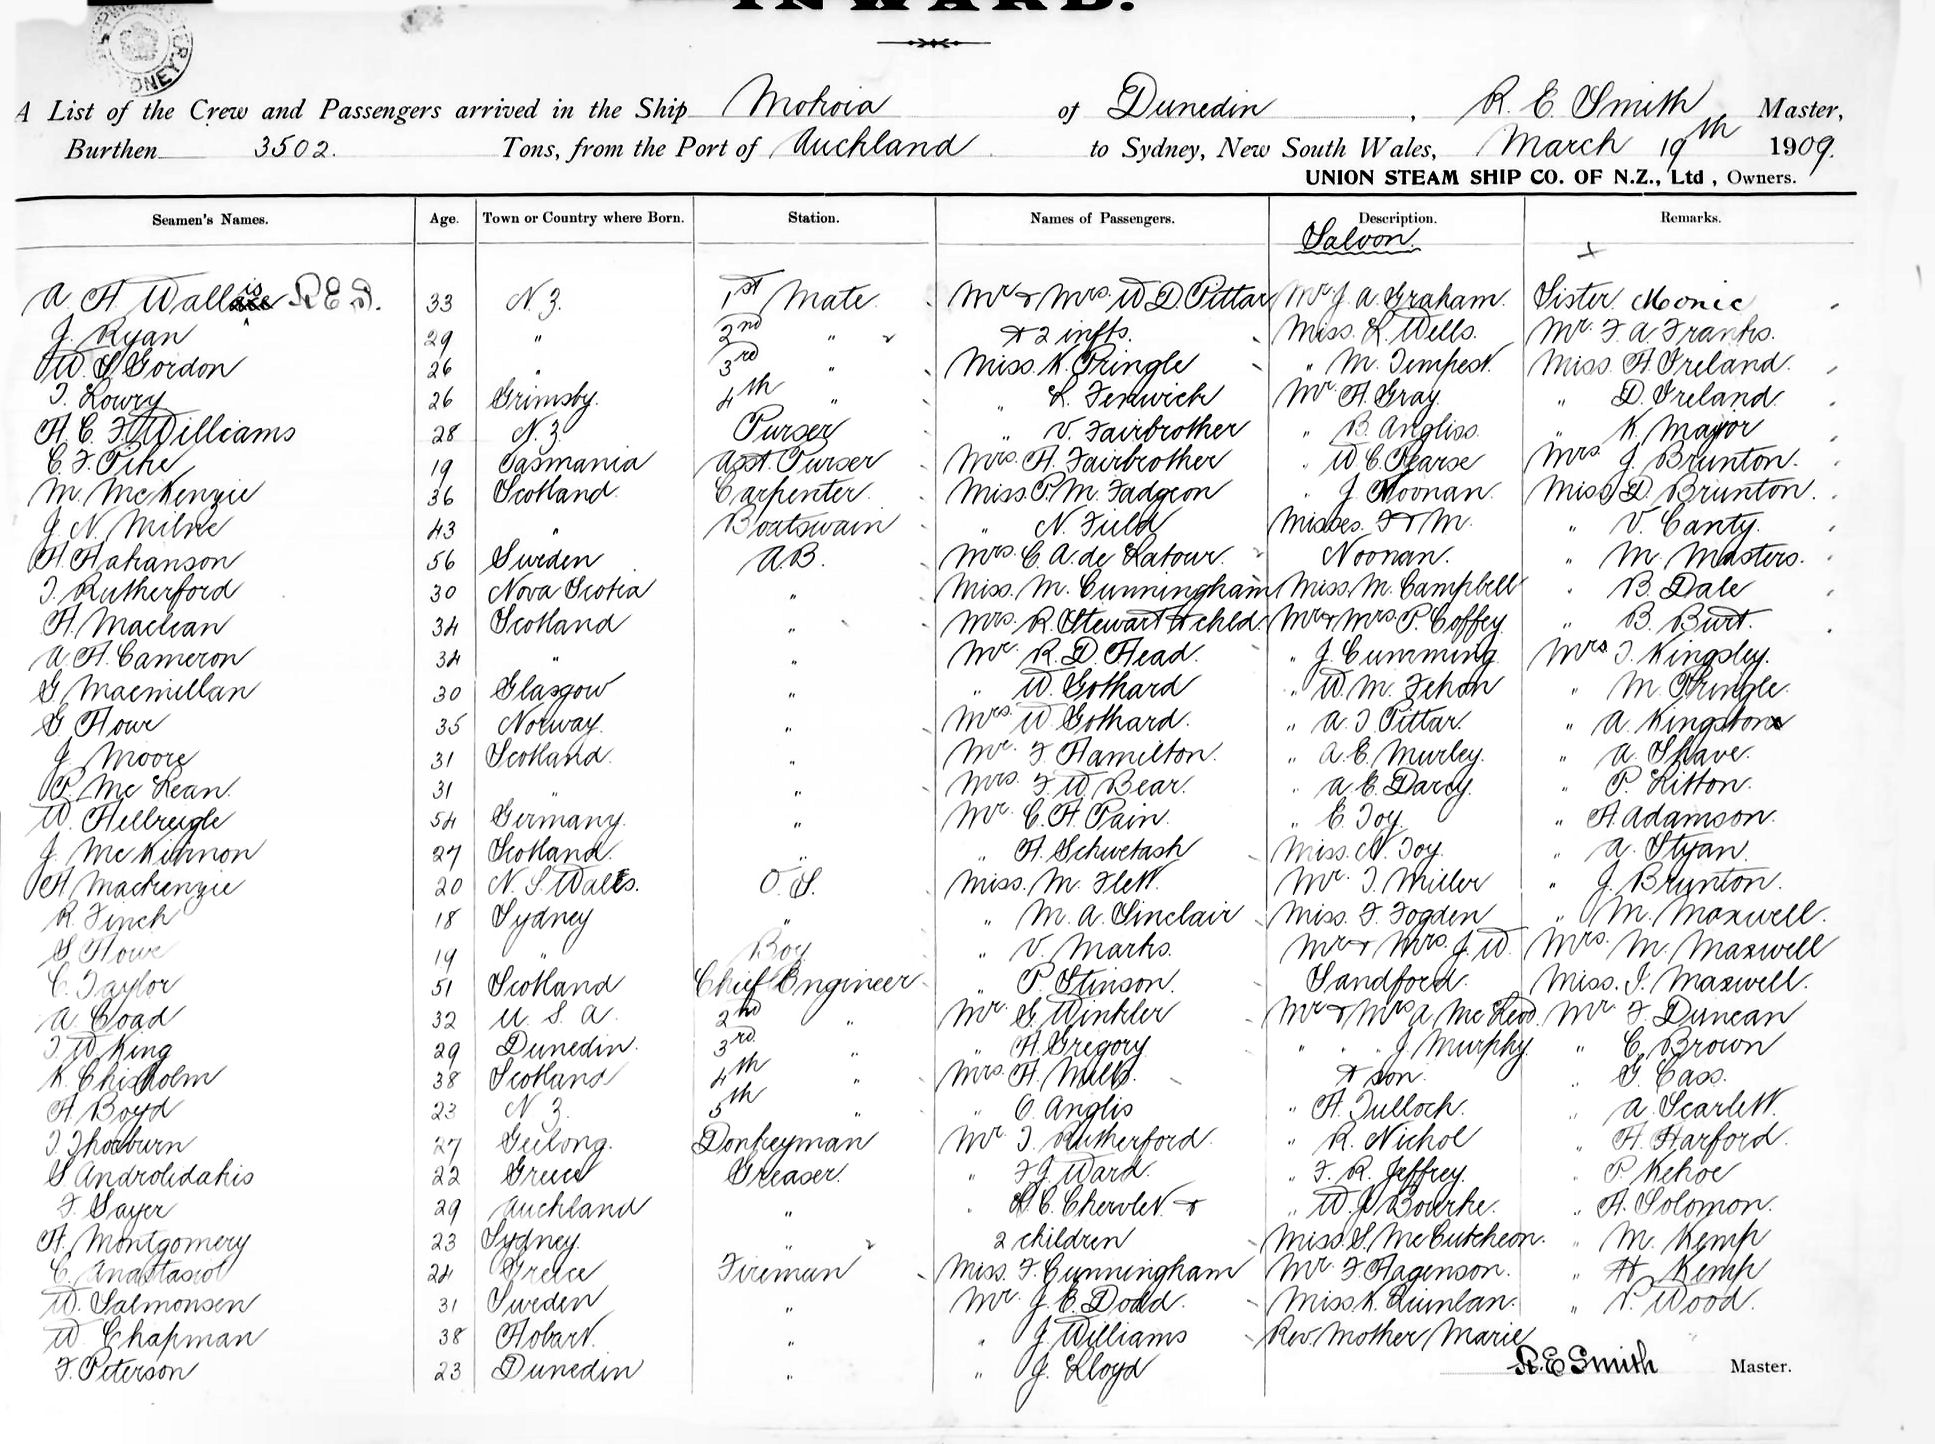 INWARD.
A List of the Crew and Passengers arrived in the Ship Mokoia of Dunedin, R. E. Smith Master,
Burthen 3502. Tons, from the Port of Auckland to Sydney, New South Wales, March 19th 1909.
UNION STEAM SHIP CO. OF N.Z., Ltd, Owners.
Seamen's Names. Age. Town or Country where Born. Station. Names of Passengers. Description. Remarks.
Saloon.
A. H. Wallis R.E.S. 33 N.Z. 1st Mate. Mr & Mrs. W. D. Pittar Mr. J. A. Graham. Sister Monic
J. Ryan 29 " 2nd " & 2 infts. Miss. L. Wells. Mr. F. A. Franks.
W. S. Gordon 26 " 3rd " Miss. K. Pringle " M. Tempest. Miss. H. Ireland.
T. Lowry 26 Grimsby. 4th " " L. Fenwick Mr H. Gray " D. Ireland.
H. C. F. Williams 28 N.Z. Purser " V. Fairbrother " B. Angliss " K. Major
C. F. Pike 19 Tasmania Asst. Purser Mrs. H. Fairbrother " W. C. Pearse Mrs. J. Brunton.
M. McKenzie 36 Scotland. Carpenter. Miss. P. M. Fadgeon " J. Noonan. Miss D. Brunton.
J. N. Milne 43 " Boatswain " N. Field Misses. F & M. " V. Canty.
H. Hakanson 56 Sweden A.B. Mrs. C. A. de Latour. Noonan. " M. Masters.
T. Rutherford 30 Nova Scotia " Miss. M. Cunningham Miss. M. Campbell " B. Dale
H. Maclean 34 Scotland " Mrs. R. Stewart & chld. Mr & Mrs. P. Coffey. " B. Burt.
A. H. Cameron 34 " " Mr. R. D. Head. " J. Cumming Mrs. T. Kingsley.
G. Macmillan 30 Glasgow " " W. Gothard " W. M. Fehon " M. Pringle.
G. Howe 35 Norway. " Mrs. W. Gothard. " A. T. Pittar. " A. Kingston
J. Moore 31 Scotland. " Mr. F. Hamilton. " A. E. Murley. " A. Shave.
P. McLean. 31 " " Mrs. F. W. Bear. " A. E. Darcy. " P. Litton.
W. Hellreigle 54 Germany. " Mr C. H. Pain. " E. Joy " H. Adamson.
J. McKinnon 27 Scotland. " " H. Schwetash Miss. N. Joy. " A. Styan.
H. Mackenzie 20 N. S. Wales. O.S. Miss. M. Flett. Mr. T. Miller " J. Brunton.
R. Finch 18 Sydney " " M. A. Sinclair Miss. F. Fogden " M. Maxwell.
S. Howe 19 " Boy " V. Marks. Mr & Mrs. J. W. Mrs. M. Maxwell
C. Taylor 51 Scotland Chief Engineer " P. Stinson. Sandford. Miss. I. Maxwell.
A. Coad 32 U. S. A. 2nd " Mr. G. Winkler Mr & Mrs A. McLeod. Mr. F. Duncan
T. W. King 29 Dunedin. 3rd " " H. Gregory " " " J. Murphy. " C. Brown
K. Chisholm 38 Scotland 4th " Mrs. H. Mills. & son. " G. Cass.
H. Boyd 23 N.Z. 5th " " O. Anglis " H. Tulloch. " A. Scarlett.
T. Thorburn 27 Geelong. Donkeyman Mr T. Rutherford. " R. Nichol " H. Harford.
S. Androlidakis 22 Greece Greaser. " F. J. Ward. " F. R. Jeffrey. " P. Kehoe
F. Sayer 29 Auckland " " L. C. Chervlet & " W. J. Bourke. " H. Solomon.
H. Montgomery 23 Sydney. " 2 children Miss. S. McCutcheon. " M. Kemp
C. Anastasiol 24 Greece Fireman Miss. F. Cunningham Mr. F. Hagenson. " H. Kemp
W. Salmonsen 31 Sweden " Mr. J. E. Dodd. Miss K. Quinlan. " P. Wood.
W. Chapman 38 Hobart. " " J. Williams Rev. Mother Marie
F. Peterson 23 Dunedin " " J. Lloyd R. E. Smith Master.